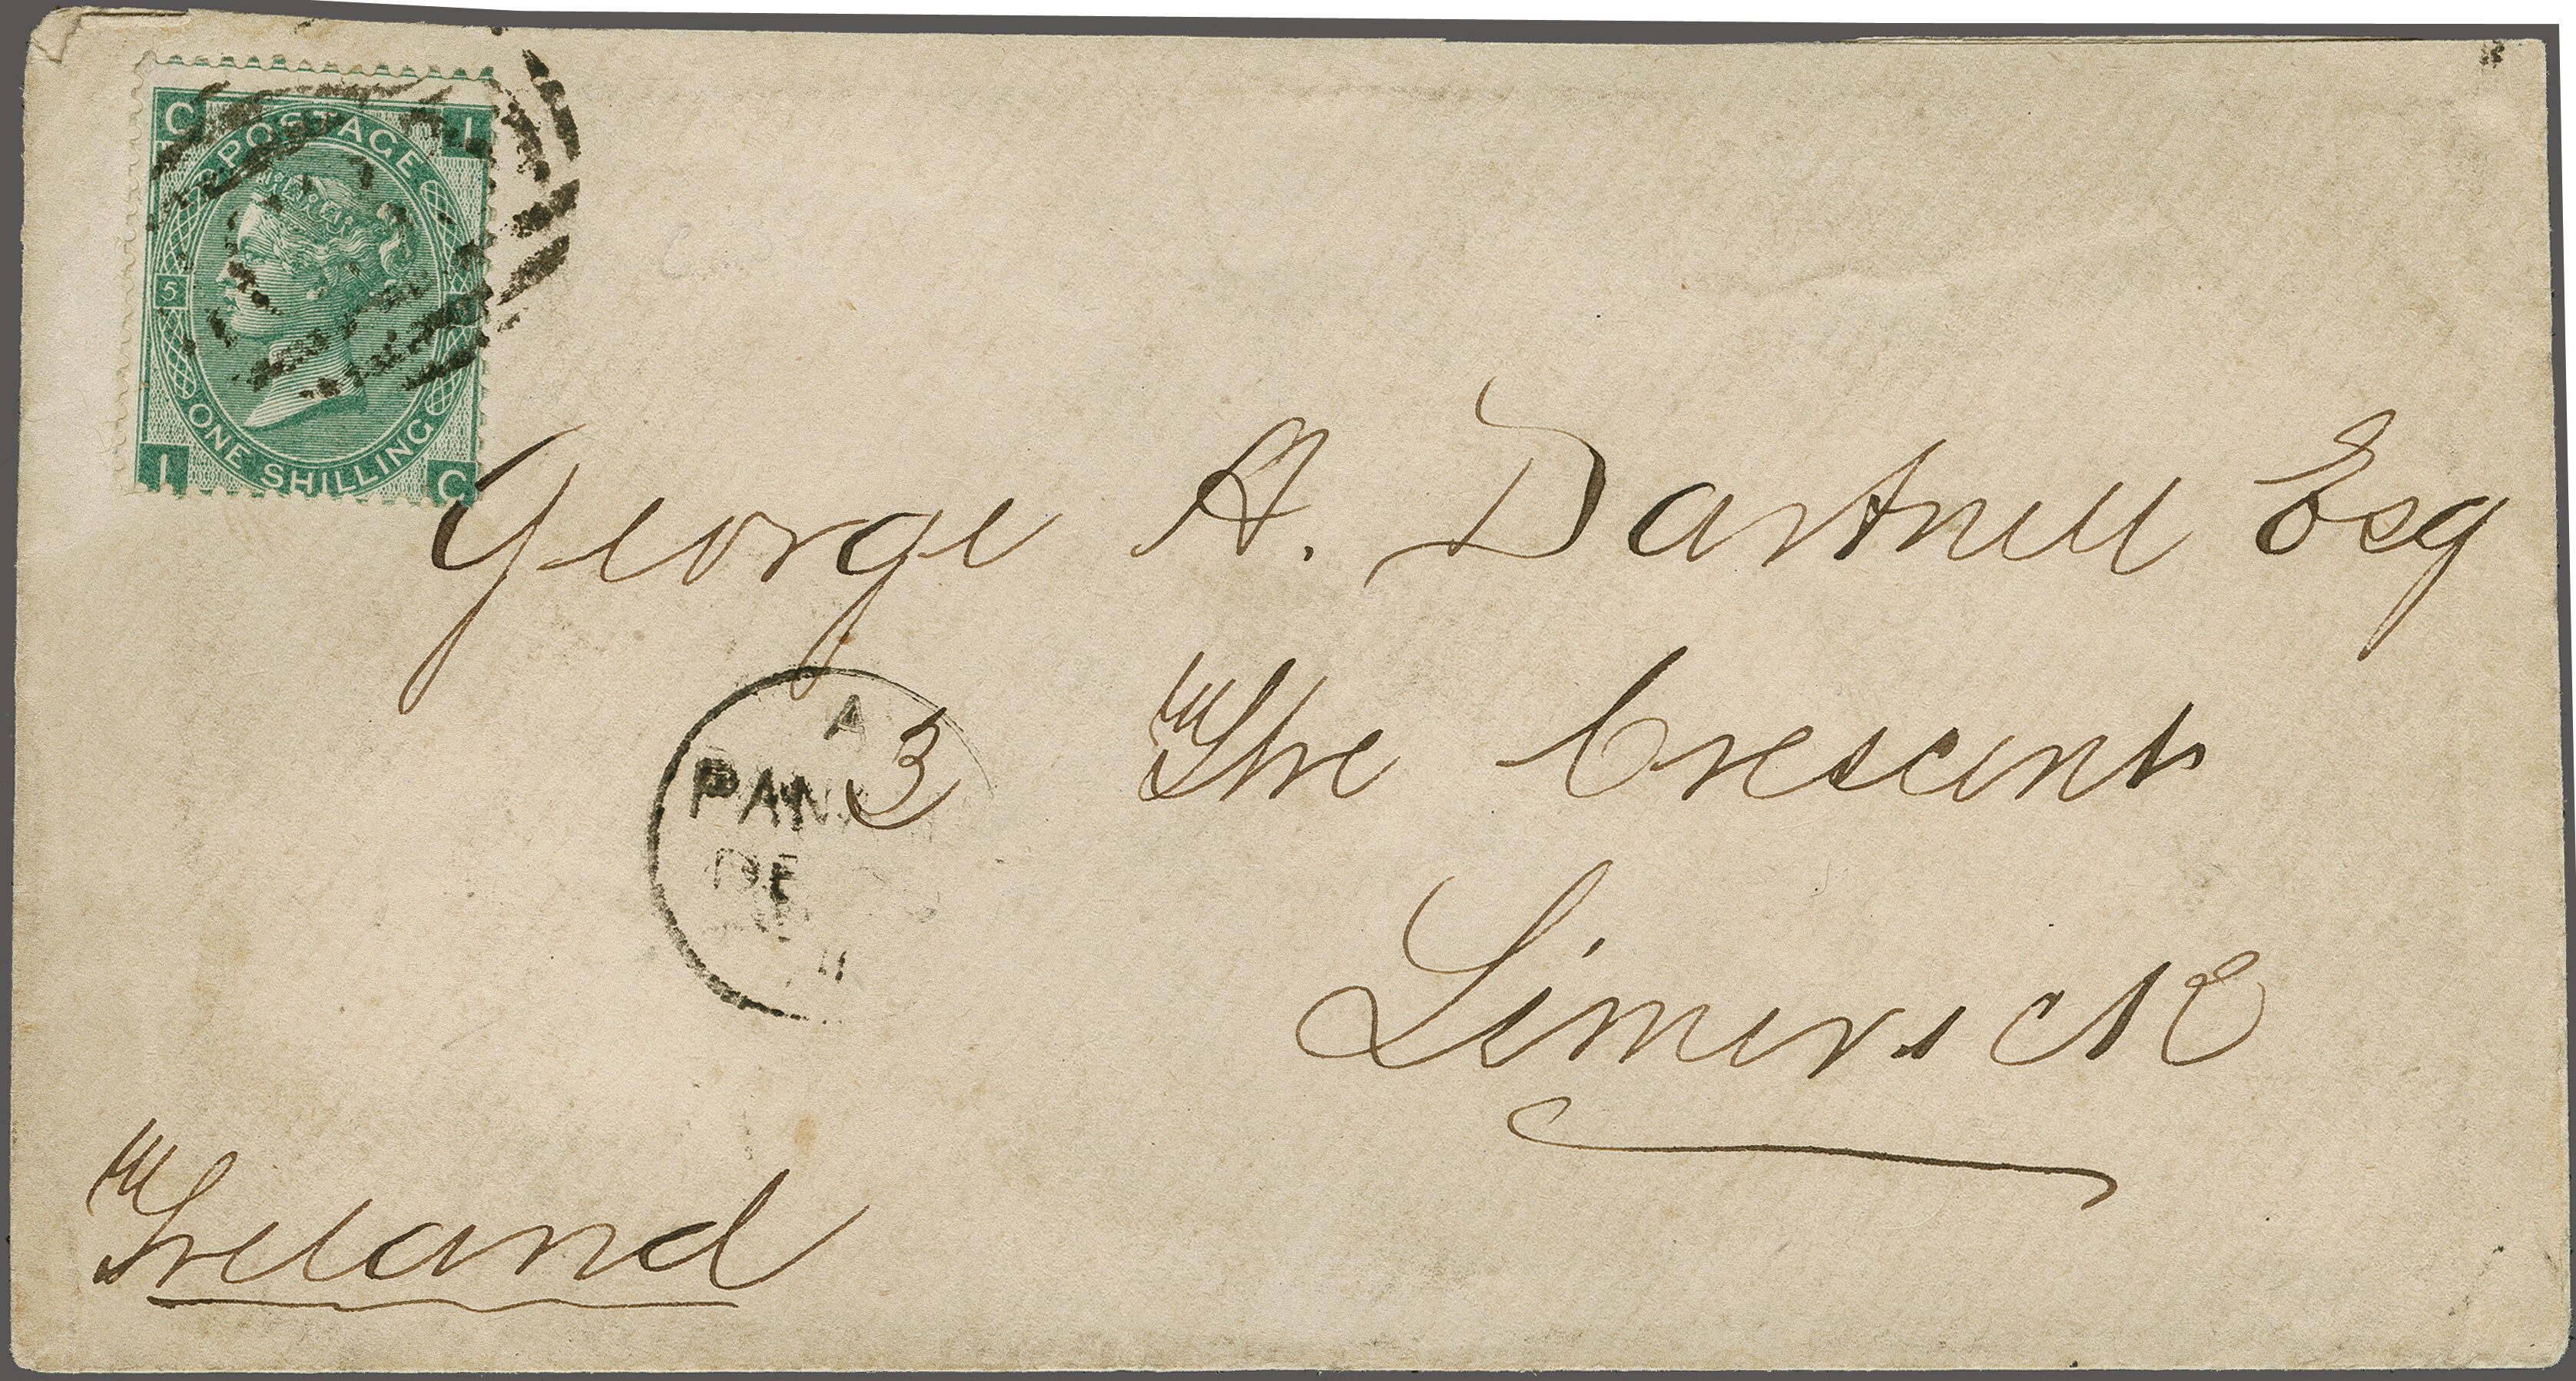 C I
POSTAGE
5
ONE SHILLING
I C
George A. Dartnell Esq
A
3 The Crescent
Limerick
Ireland